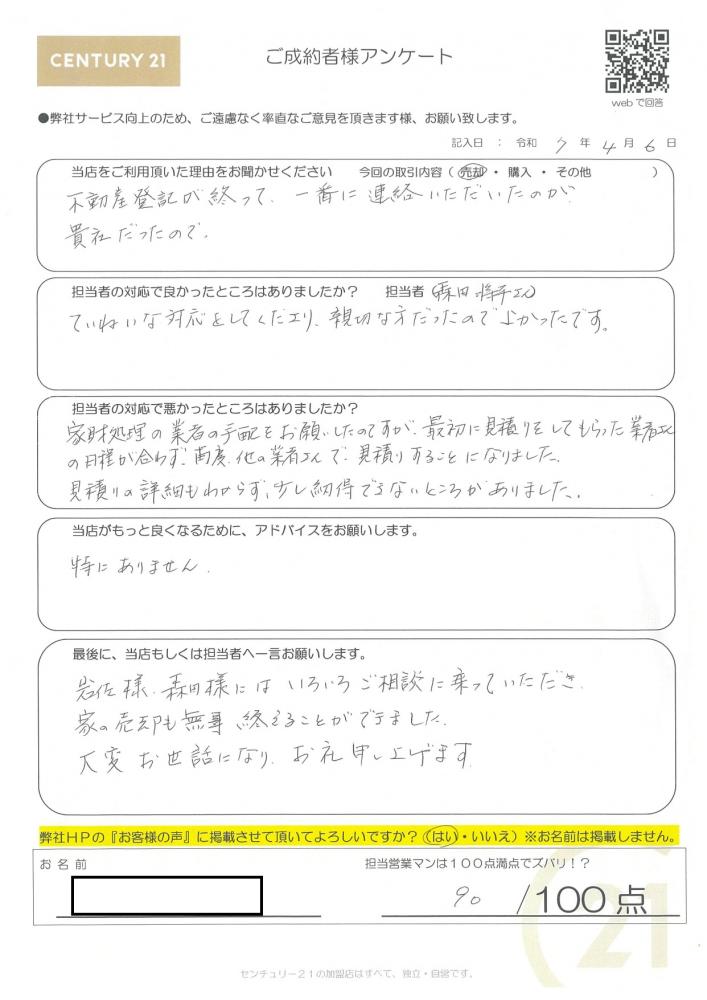 CENTURY 21
ご成約者様アンケート
webで回答
●弊社サービス向上のため、ご遠慮なく率直なご意見を頂きます様、お願い致します。
記入日 : 令和 7 年 4 月 6 日
当店をご利用頂いた理由をお聞かせください 今回の取引内容（ 売却 ・ 購入 ・ その他 ）
不動産登記が終って、一番に連絡いただいたのが
貴社だったので。
担当者の対応で良かったところはありましたか? 担当者（森田 将平さん）
ていねいな対応をしてくださり、親切な方だったのでよかったです。
担当者の対応で悪かったところはありましたか?
家財処理の業者の手配をお願いしたのですが、最初に見積りをしてもらった業者さん
の日程が合わず、再度、他の業者さんで、見積りすることになりました。
見積りの詳細もわからず、少し納得できないところがありました。
当店がもっと良くなるために、アドバイスをお願いします。
特にありません.
最後に、当店もしくは担当者へ一言お願いします。
岩佐様、森田様にはいろいろご相談に乗っていただき、
家の売却も無事終えることができました。
大変お世話になり、お礼申し上げます
弊社ＨＰの『お客様の声』に掲載させて頂いてよろしいですか？（はい・いいえ）※お名前は掲載しません。
お名前 担当営業マンは１００点満点でズバリ！？
90 /100点
21
センチュリー２１の加盟店はすべて、独立・自営です。